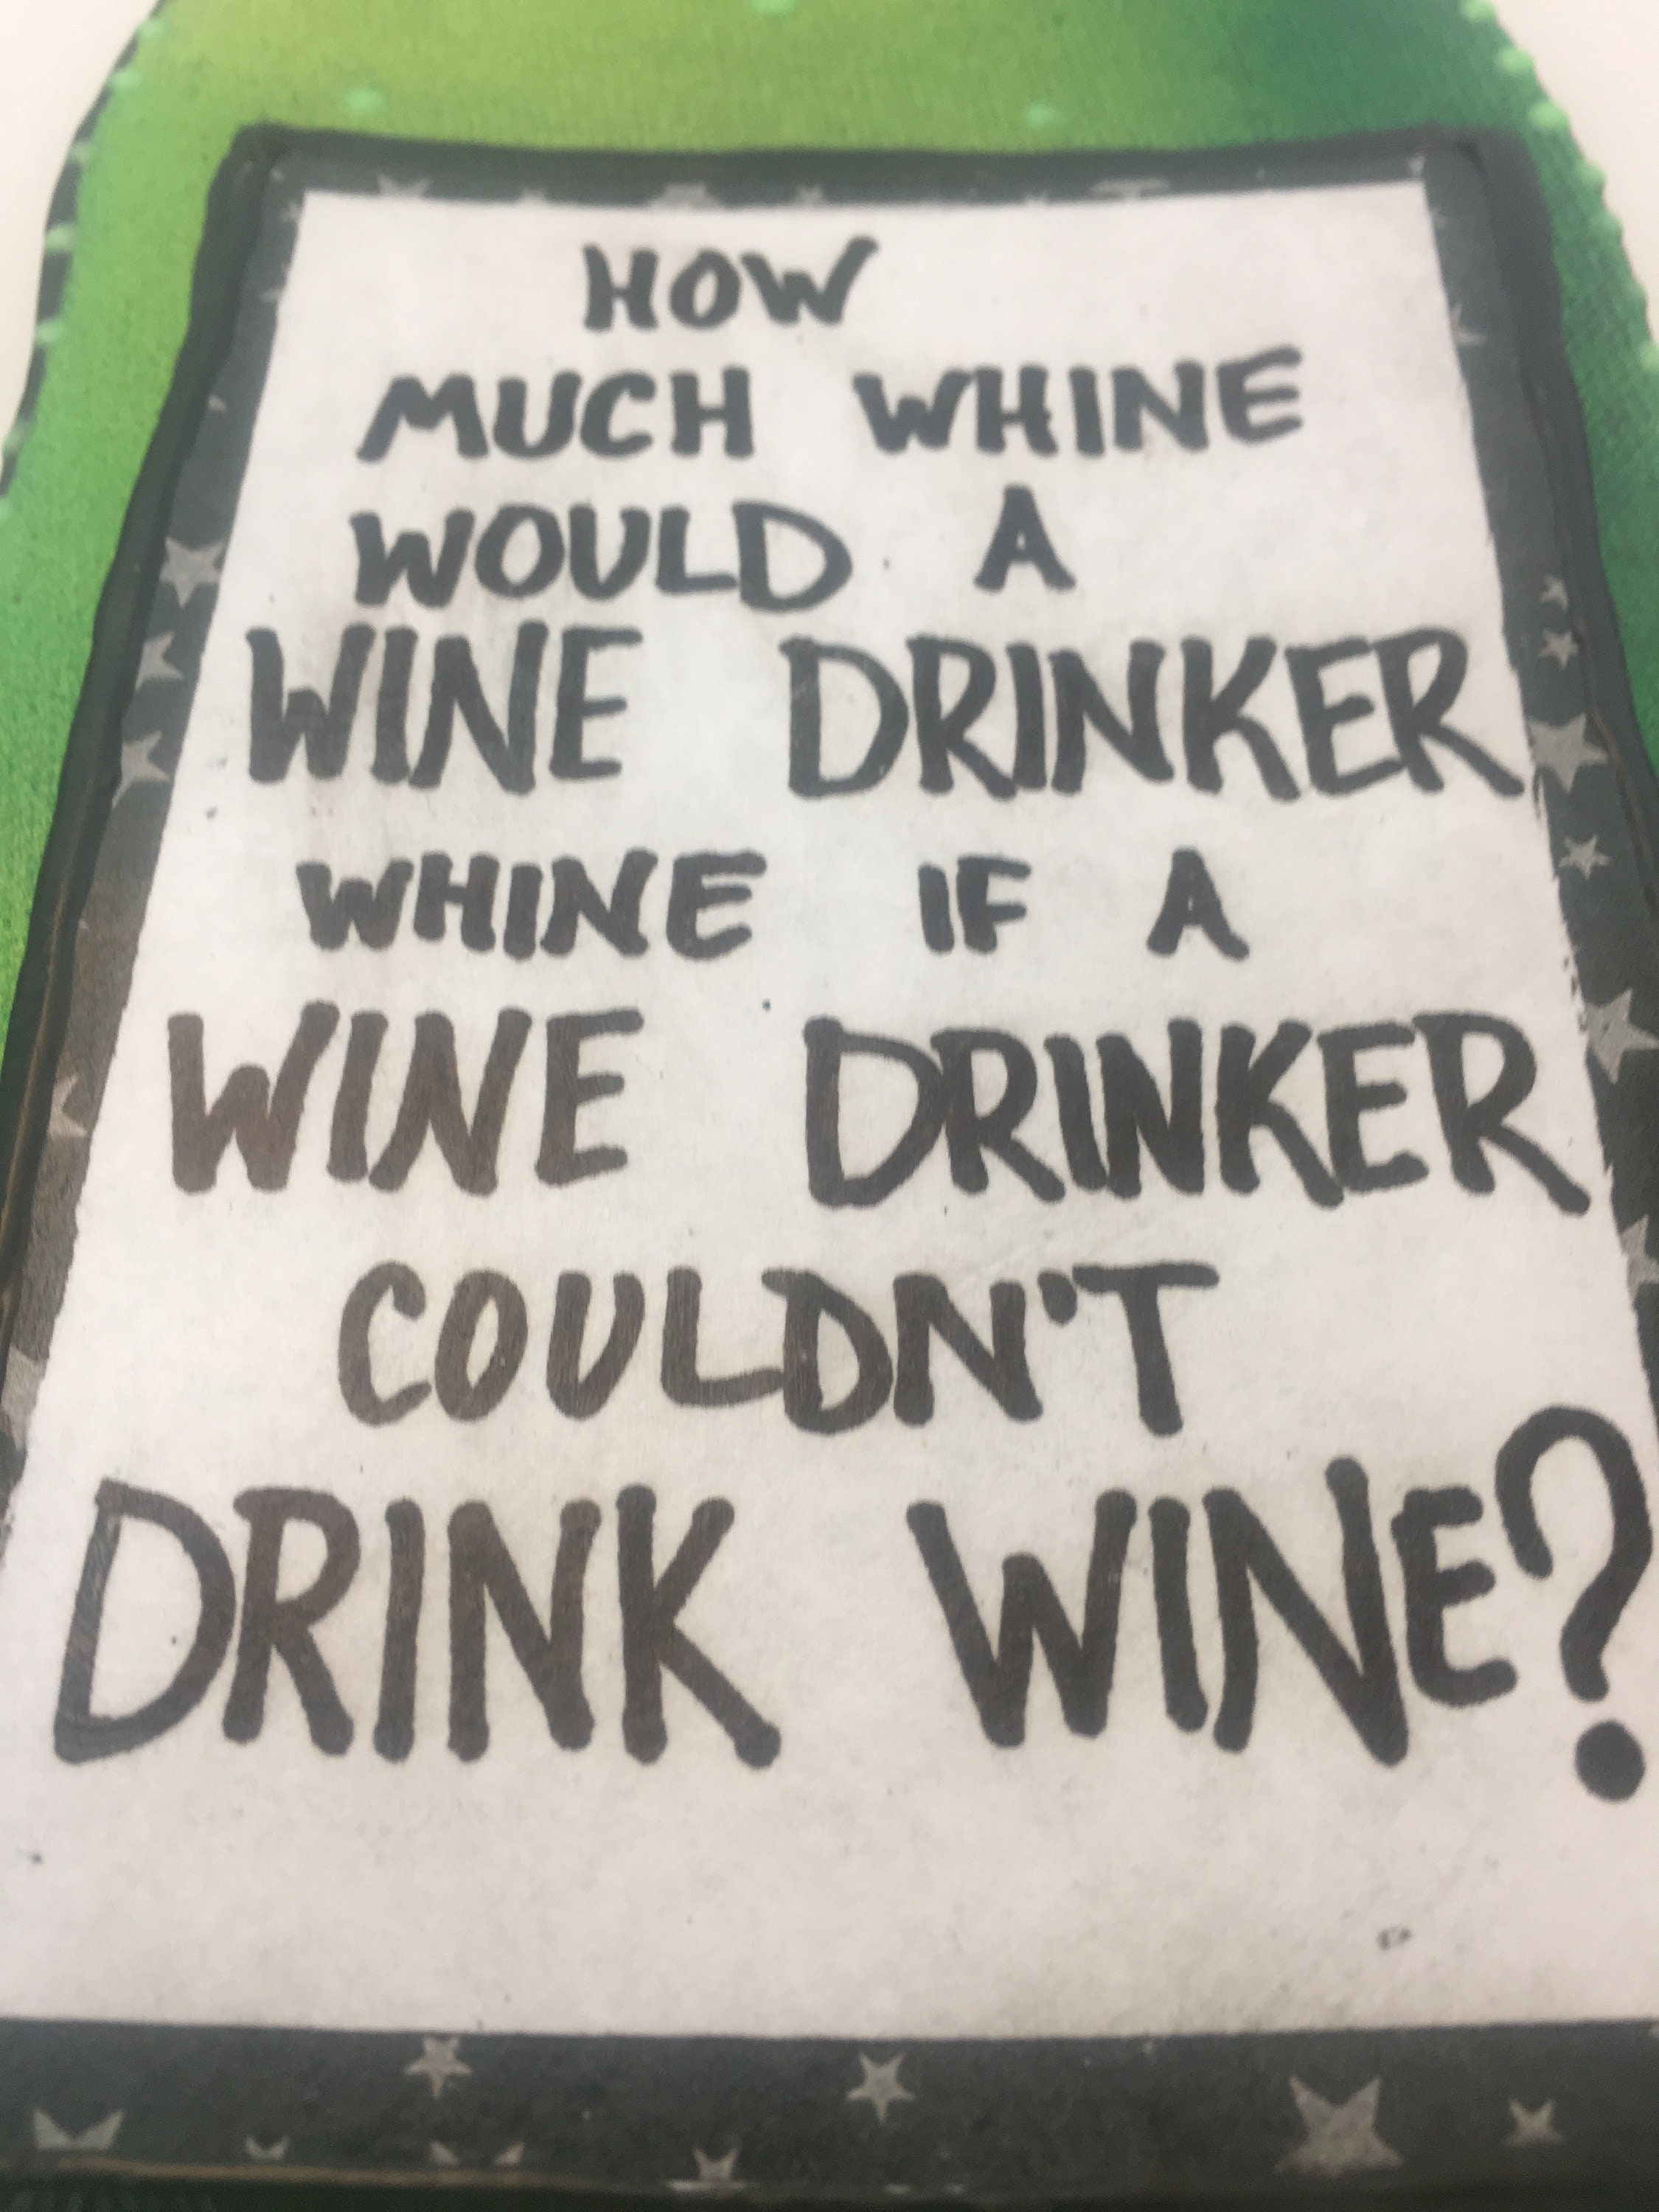 HOW
MUCH WHINE
WOULD A
WINE DRINKER
WHINE IF A
WINE DRINKER
COULDN'T
DRINK WINE?